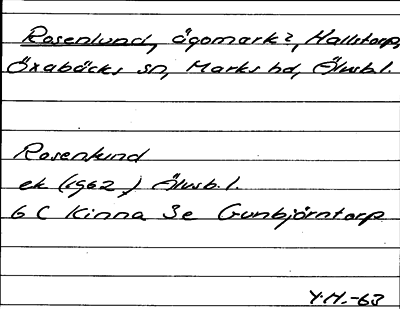 Rosenlund, ägomark?, Hallstorp,
Öxabäcks sn, Marks hd, Älvsb.l.
Rosenlund
ek (1962) Älvsb.l.
6 C Kinna 3e Gunbjörntorp
Y.H.-63